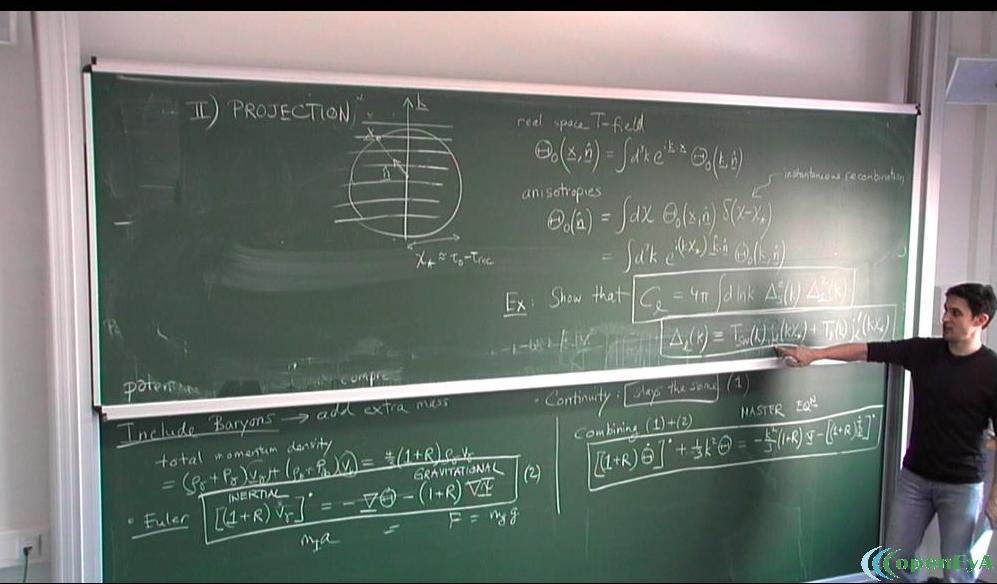 II) PROJECTION
k
n̂
χ* ≈ τ₀-τrec
real space T-field
Θ₀(x,n̂) = ∫d³k e^{ik·x} Θ₀(k,n̂)
instantaneous recombination
anisotropies
Θ₀(n̂) = ∫dχ Θ₀(x,n̂) δ(χ-χ*)
= ∫d³k e^{i(kχ*)k̂·n̂} Θ₀(k,n̂)
Ex: Show that C_ℓ = 4π ∫dlnk Δ_s²(k) Δ_ℓ²(k)
Δ_ℓ(k) ≡ T_SW(k) j_ℓ(kχ*) + T_D(k) j_ℓ'(kχ*)
Include Baryons → add extra mass
total momentum density
= (ρ_γ+P_γ)v_γ + (ρ_b+P_b)v_b = 4/3 (1+R) ρ_γ v_γ
INERTIAL
GRAVITATIONAL
• Euler [(1+R) v_γ]˙ = -∇Θ - (1+R) ∇Ψ (2)
m_I a = F = m_g g
• Continuity: stays the same (1)
Combining (1)+(2)
MASTER EQN
[(1+R) Θ̇]˙ + 1/3 k² Θ = -k²/3 (1+R) Ψ - [(1+R) Φ̇]˙
openEyA